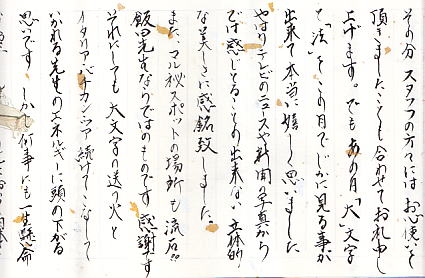 その分 スタッフの方々には お心使いを
頂きましたことも合わせてお礼申し
上げます。でも あの月「大」文字
と「法」をこの目でじかに見る事が
出来て本当に嬉しく思いました
やはりテレビのニュースや新聞の写真から
では感じとることの出来ない 立体的
な美しさに感銘致しました。
また マル秘スポットの場所も 流石!!
飯田先生ならではのものです 感謝です
それにしても 大文字の送り火と
イタリア バチカン ツアー 続けてこなして
いかれる先生のエネルギーに頭の下がる
思いです しかし何事にも一生懸命